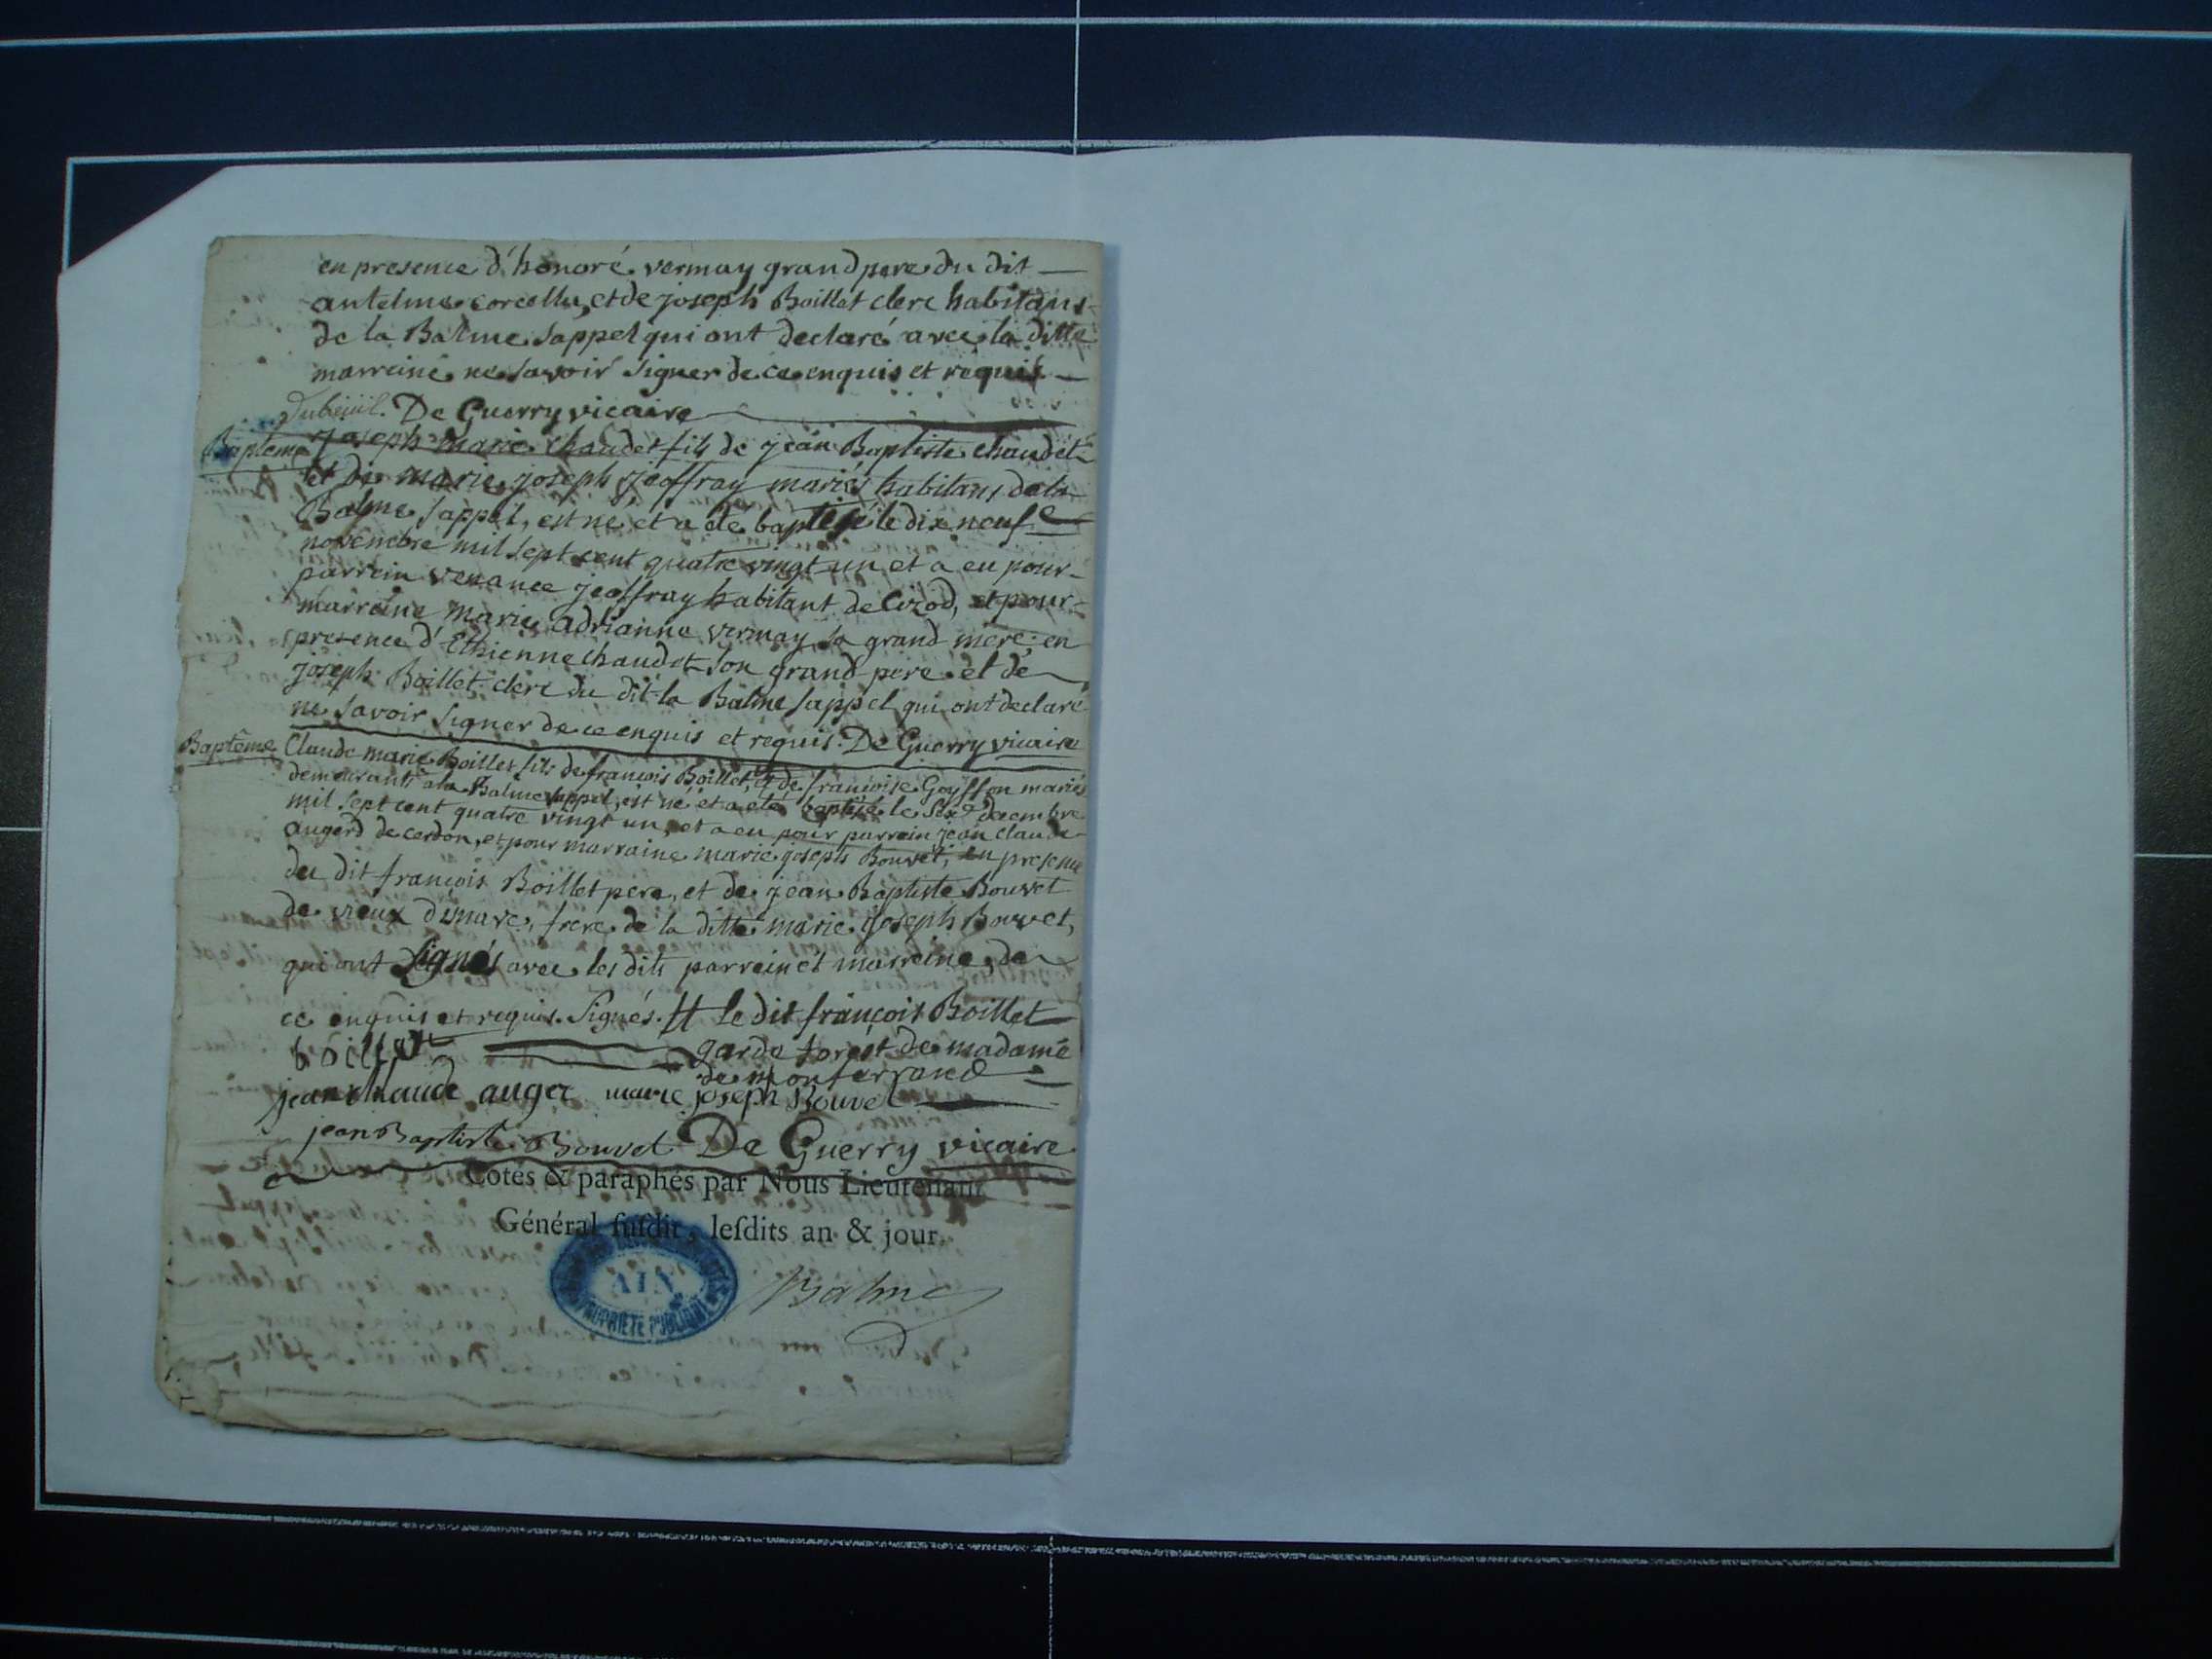 en presence d'honoré vermay grand pere du dit
antelme corcellu, et de joseph Boillet clerc habitans
de la Balme sappel qui ont declaré avec la ditte
marreine ne savoir signer de ce enquis et requis
De Guerry vicaire
Baptême Joseph marie chaudet fils de jean Baptiste chaudet
et de marie joseph jeoffray mariés habitans dela
Balme sappel, est né et a été baptisé le dix neuf
novembre mil sept cent quatre vingt un et a eu pour
parrein venance jeoffray habitant de Cizod, et pour
marreine marie adrianne vermay sa grand mere; en
presence d'Ethienne chaudet son grand pere et de
joseph Boillet clerc du dit la Balme sappel qui ont declaré
ne savoir signer de ce enquis et requis. De Guerry vicaire
Baptême Claude marie Boillet fils de françois Boillet, et de françoise Goyffon mariés
demeurants a la Balme sappel, est né et a eté baptisé le decembre
mil sept cent quatre vingt un, et a eu pour parrein jean claude
augerd de cerdon, et pour marraine marie joseph Bouvet, en presence
du dit françois Boillet pere, et de jean Baptiste Bouvet
de vieux dismarc, frere de la ditte marie joseph Bouvet,
qui ont signés avec les dits parrein et marreine, de
ce enquis et requis. Signés. # le dit françois Boillet
boillet garde forest de madame
de montferrand
jean chaude auger marie joseph Bouvet
jean Baptiste Bouvet De Guerry vicaire
Cotés & paraphés par Nous Lieutenant
Général susdit, lesdits an & jour.
AIN
PROPRIETE PUBLIQUE
Balme